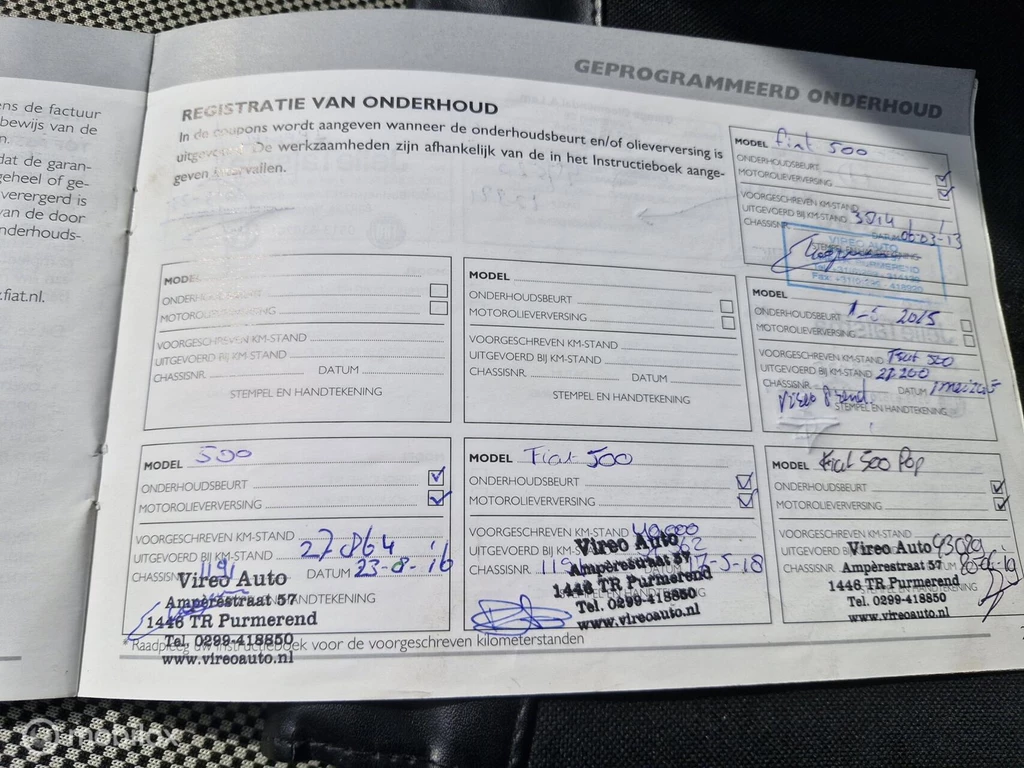 ens de factuur
bewijs van de
n.
dat de garan-
geheel of ge-
verergerd is
van de door
nderhouds-
.fiat.nl.
GEPROGRAMMEERD ONDERHOUD
REGISTRATIE VAN ONDERHOUD
In de coupons wordt aangeven wanneer de onderhoudsbeurt en/of olieverversing is
De werkzaamheden zijn afhankelijk van de in het Instructieboek aange-
geven intervallen.
MODEL fiat 500
ONDERHOUDSBEURT
MOTOROLIEVERVERSING
VOORGESCHREVEN KM-STAND
UITGEVOERD BIJ KM-STAND 3814
CHASSISNR. DATUM 06-03-13
VIREO AUTO
PURMEREND
MODEL
ONDERHOUDSBEURT
MOTOROLIEVERVERSING
VOORGESCHREVEN KM-STAND
UITGEVOERD BIJ KM-STAND
CHASSISNR. DATUM
STEMPEL EN HANDTEKENING
MODEL
ONDERHOUDSBEURT
MOTOROLIEVERVERSING
VOORGESCHREVEN KM-STAND
UITGEVOERD BIJ KM-STAND
CHASSISNR. DATUM
STEMPEL EN HANDTEKENING
MODEL
ONDERHOUDSBEURT 1-5 2015
MOTOROLIEVERVERSING
VOORGESCHREVEN KM-STAND Fiat 500
UITGEVOERD BIJ KM-STAND 21.200
CHASSISNR. DATUM
STEMPEL EN HANDTEKENING
MODEL 500
ONDERHOUDSBEURT
MOTOROLIEVERVERSING
VOORGESCHREVEN KM-STAND
UITGEVOERD BIJ KM-STAND 27864
CHASSISNR. 1191 DATUM 23-8-16
HANDTEKENING
Vireo Auto
Ampèrestraat 57
1446 TR Purmerend
Tel. 0299-418850
www.vireoauto.nl
MODEL Fiat 500
ONDERHOUDSBEURT
MOTOROLIEVERVERSING
VOORGESCHREVEN KM-STAND 40.000
UITGEVOERD BIJ KM-S
CHASSISNR. 119 17-5-18
Vireo Auto
Ampèrestraat 57
1446 TR Purmerend
Tel. 0299-418850
www.vireoauto.nl
MODEL Fiat 500 Pop
ONDERHOUDSBEURT
MOTOROLIEVERVERSING
VOORGESCHREVEN KM-STAND
UITGEVOERD 43089
CHASSISNR.
Vireo Auto
Ampèrestraat 57
1446 TR Purmerend
Tel. 0299-418850
www.vireoauto.nl
* Raadpleeg uw instructieboek voor de voorgeschreven kilometerstanden
mobilox